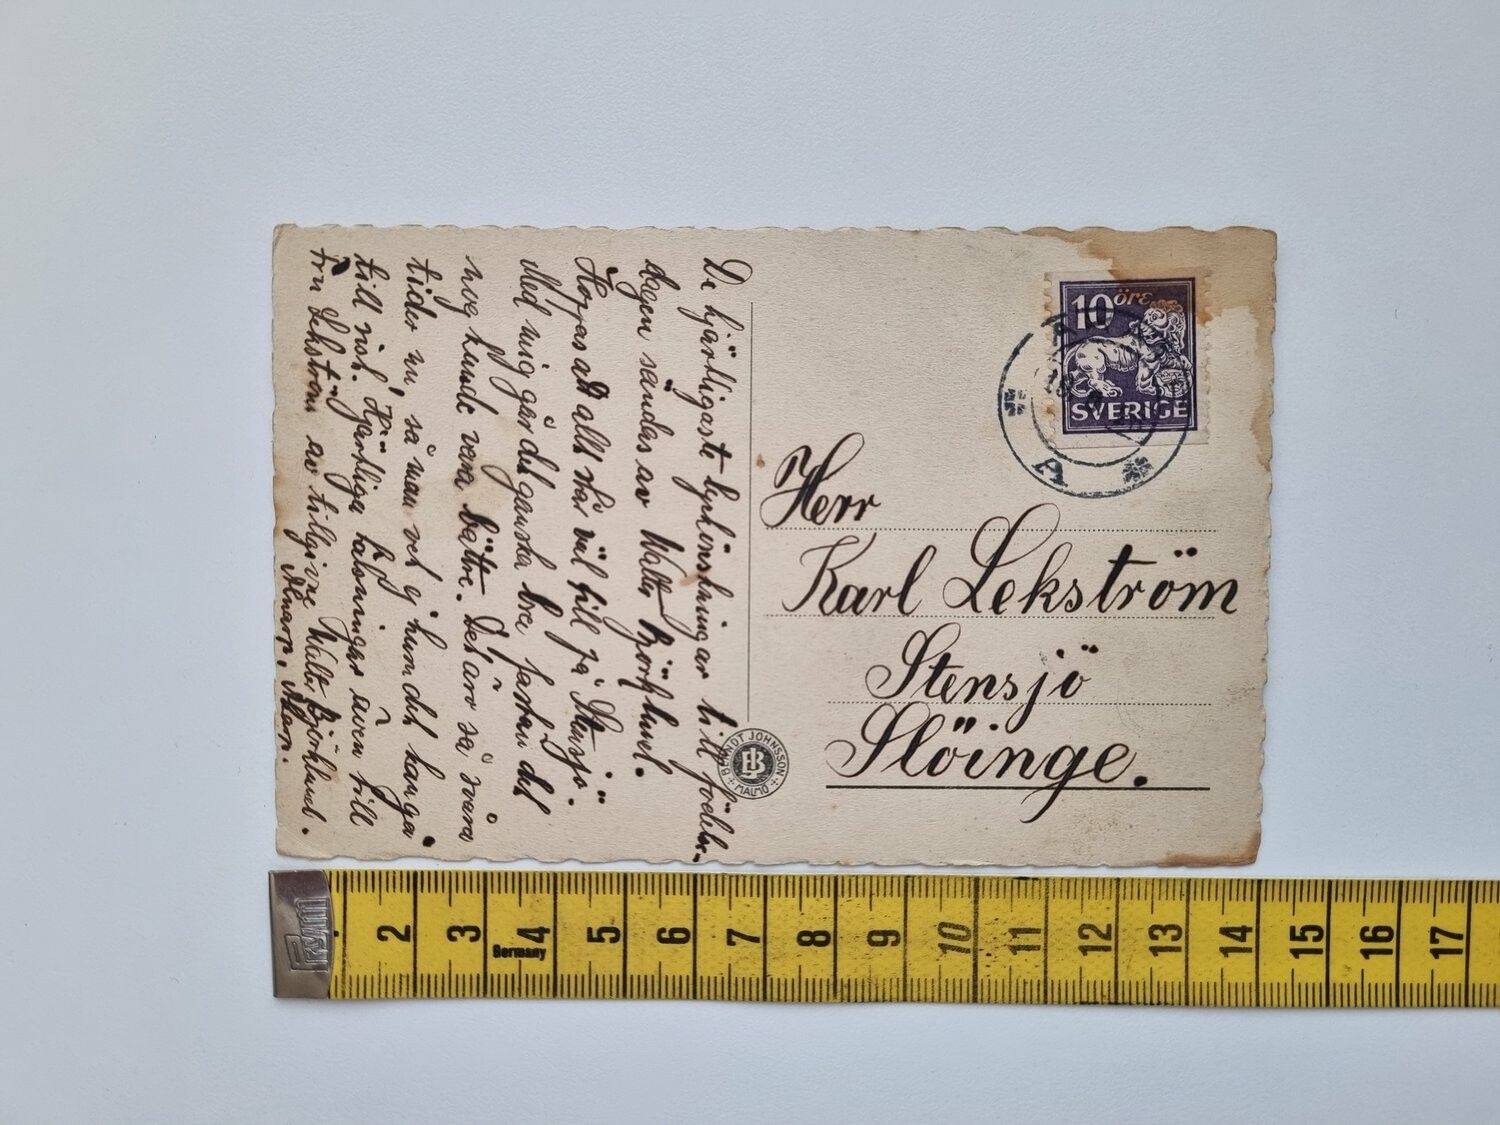 De hjärtligaste lyckönskningar till födelse-
dagen sändas av Walter Björkhuel.
Hoppas att allt står väl till på Stensjö.
Med mig går det ganska bra fastän det
nog kunde vara bättre. Det äro så svåra
tider nu, så man vet ej hur det kan gå
till sist. Hjärtliga hälsningar även till
Fru Lekström av tillgivne Walter Björkhuel.
Alnarp, Åkarp.
10 öre
SVERIGE
A
Herr
Karl Lekström
Stensjö
Slöinge.
BERNDT JOHNSSON
BJ
MALMÖ
2 3 4 5 6 7 8 9 10 11 12 13 14 15 16 17
Germany